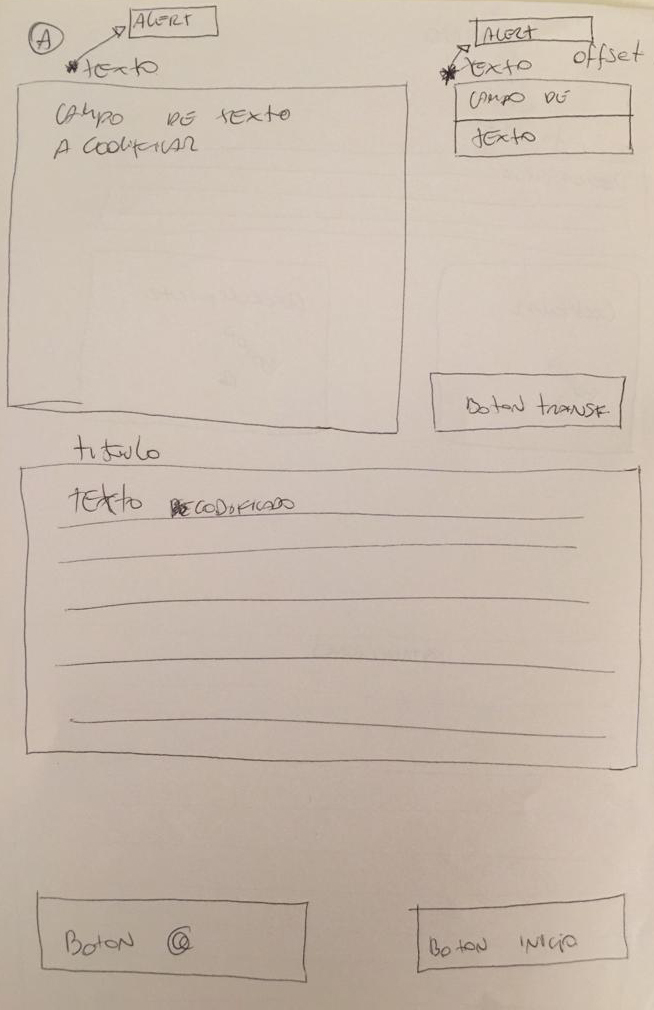 A
ALERT
*TEXTO
CAMPO DE TEXTO
A CODIFICAR
ALERT
*TEXTO offset
CAMPO DE
TEXTO
BOTON TRANSF.
titulo
TEXTO DECODIFICADO
BOTON @
BOTON INICIO